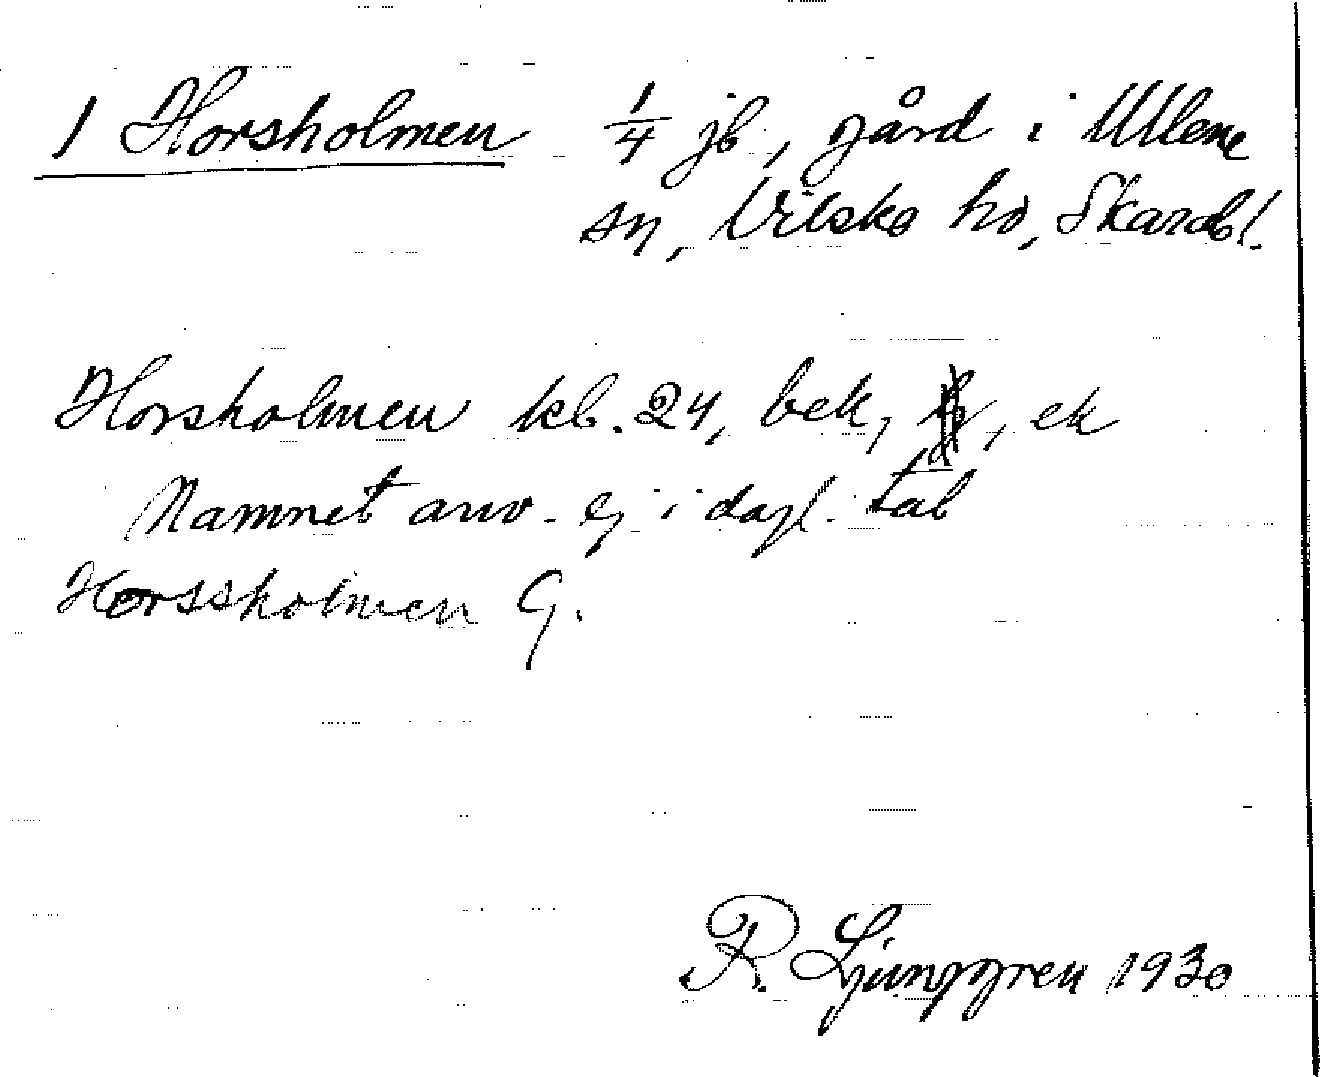 1 Horsholmen 1/4 jb, gård i Ullene
sn, Vilske hd, Skarabl.
Horsholmen kb. 24, bek, , ek
Namnet anv. ej i dagl. tal
Horssholmen G.
R. Ljunggren 1930